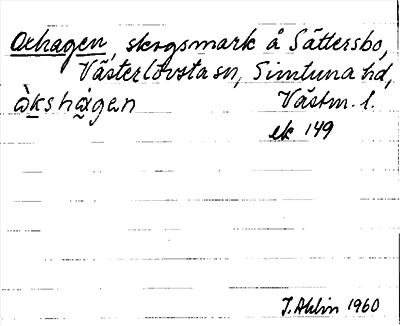 Oxhagen, skogsmark å Sättersbo,
Västerlövsta sn, Simtuna hd,
àkshàgen Västm. l.
ek 149
J. Ahlin 1960